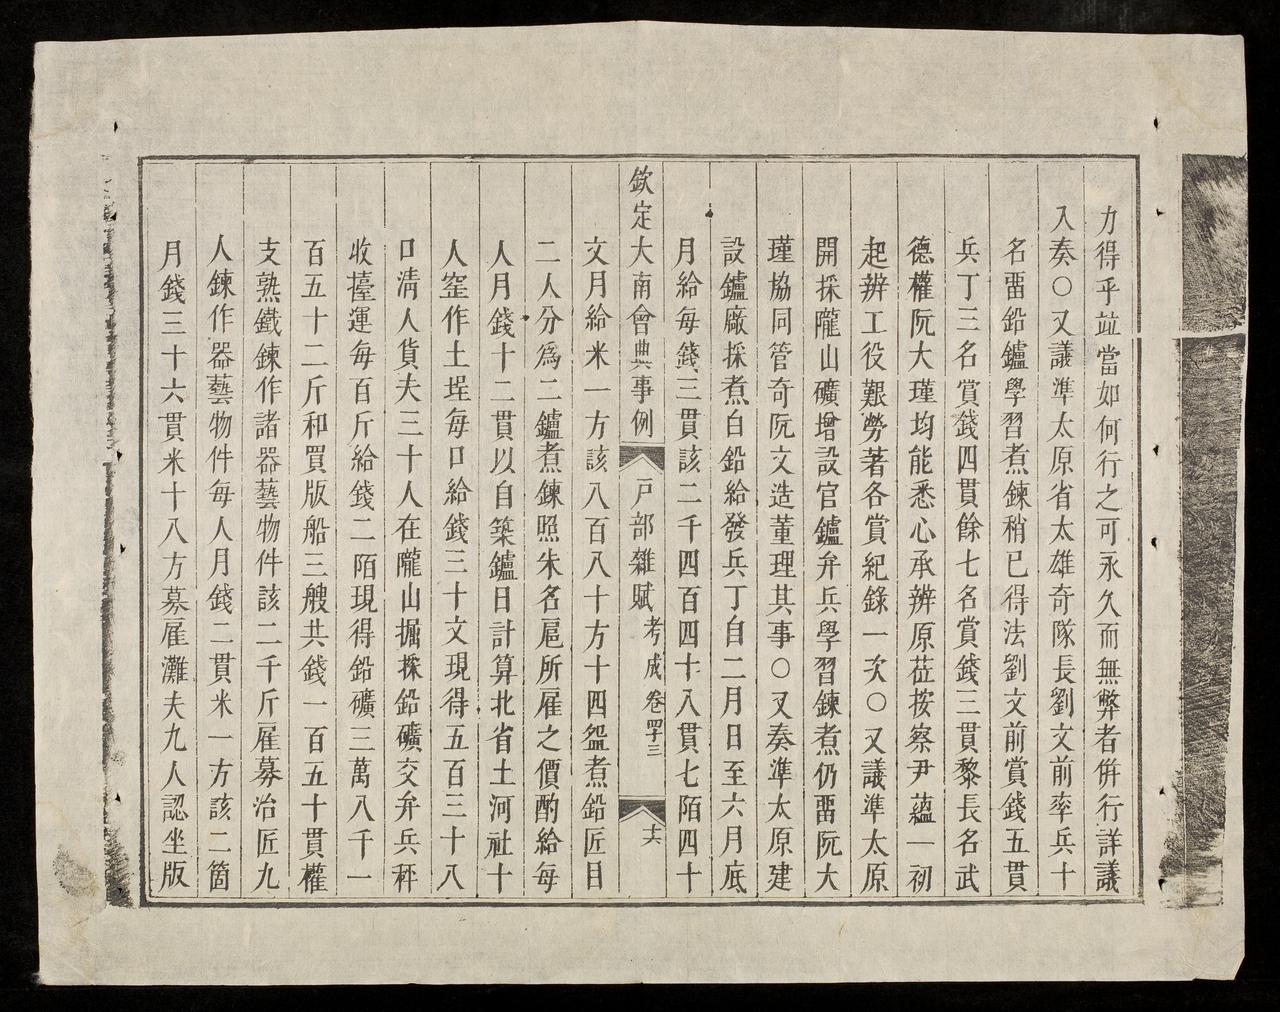 力得乎竝當如何行之可永久而無弊者併行詳議
入奏〇又議準太原省太雄奇隊長劉文前率兵十
名畱鉛鑪學習煮鍊稍已得法劉文前賞錢五貫
兵丁三名賞錢四貫餘七名賞錢三貫黎長名武
德權阮大瑾均能悉心承辨原莅按察尹蘊一初
起辨工役艱勞著各賞紀錄一次〇又議準太原
開採隴山礦增設官鑪弁兵學習鍊煮仍畱阮大
瑾協同管奇阮文造董理其事〇又奏準太原建
設鑪廠採煮白鉛給發兵丁自二月日至六月底
月給每錢三貫該二千四百四十八貫七陌四十
欽定大南會典事例 戶部雜賦 考成卷四十三 十六
文月給米一方該八百八十方十四盌煮鉛匠目
二人分爲二鑪煮鍊照朱名扈所雇之價酌給每
人月錢十二貫以自築鑪日計算北省土河社十
人窰作土埕每口給錢三十文現得五百三十八
口清人貨夫三十人在隴山掘採鉛礦交弁兵秤
收擡運每百斤給錢二陌現得鉛礦三萬八千一
百五十二斤和買版船三艘共錢一百五十貫權
支熟鐵鍊作諸器藝物件該二千斤雇募治匠九
人鍊作器藝物件每人月錢二貫米一方該二箇
月錢三十六貫米十八方募雇灘夫九人認坐版